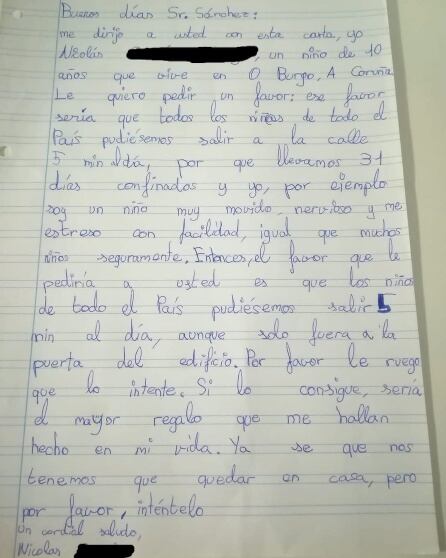 Buenos días Sr. Sánchez:
me dirijo a usted con esta carta, yo
Nicolás, un niño de 10
años que vive en O Burgo, A Coruña
Le quiero pedir un favor: ese favor
sería que todos los niños de todo el
País pudiésemos salir a la calle
5 min al día, por que llevamos 31
días confinados y yo, por ejemplo
soy un niño muy movido, nervioso y me
estreso con facilidad, igual que muchos
niños seguramente. Entonces, el favor que le
pediría a usted es que los niños
de todo el País pudiésemos salir 5
min al día, aunque solo fuera a la
puerta del edificio. Por favor le ruego
que lo intente. Si lo consigue, sería
el mayor regalo que me hallan
hecho en mi vida. Ya se que nos
tenemos que quedar en casa, pero
por favor, inténtelo
Un cordial saludo,
Nicolas